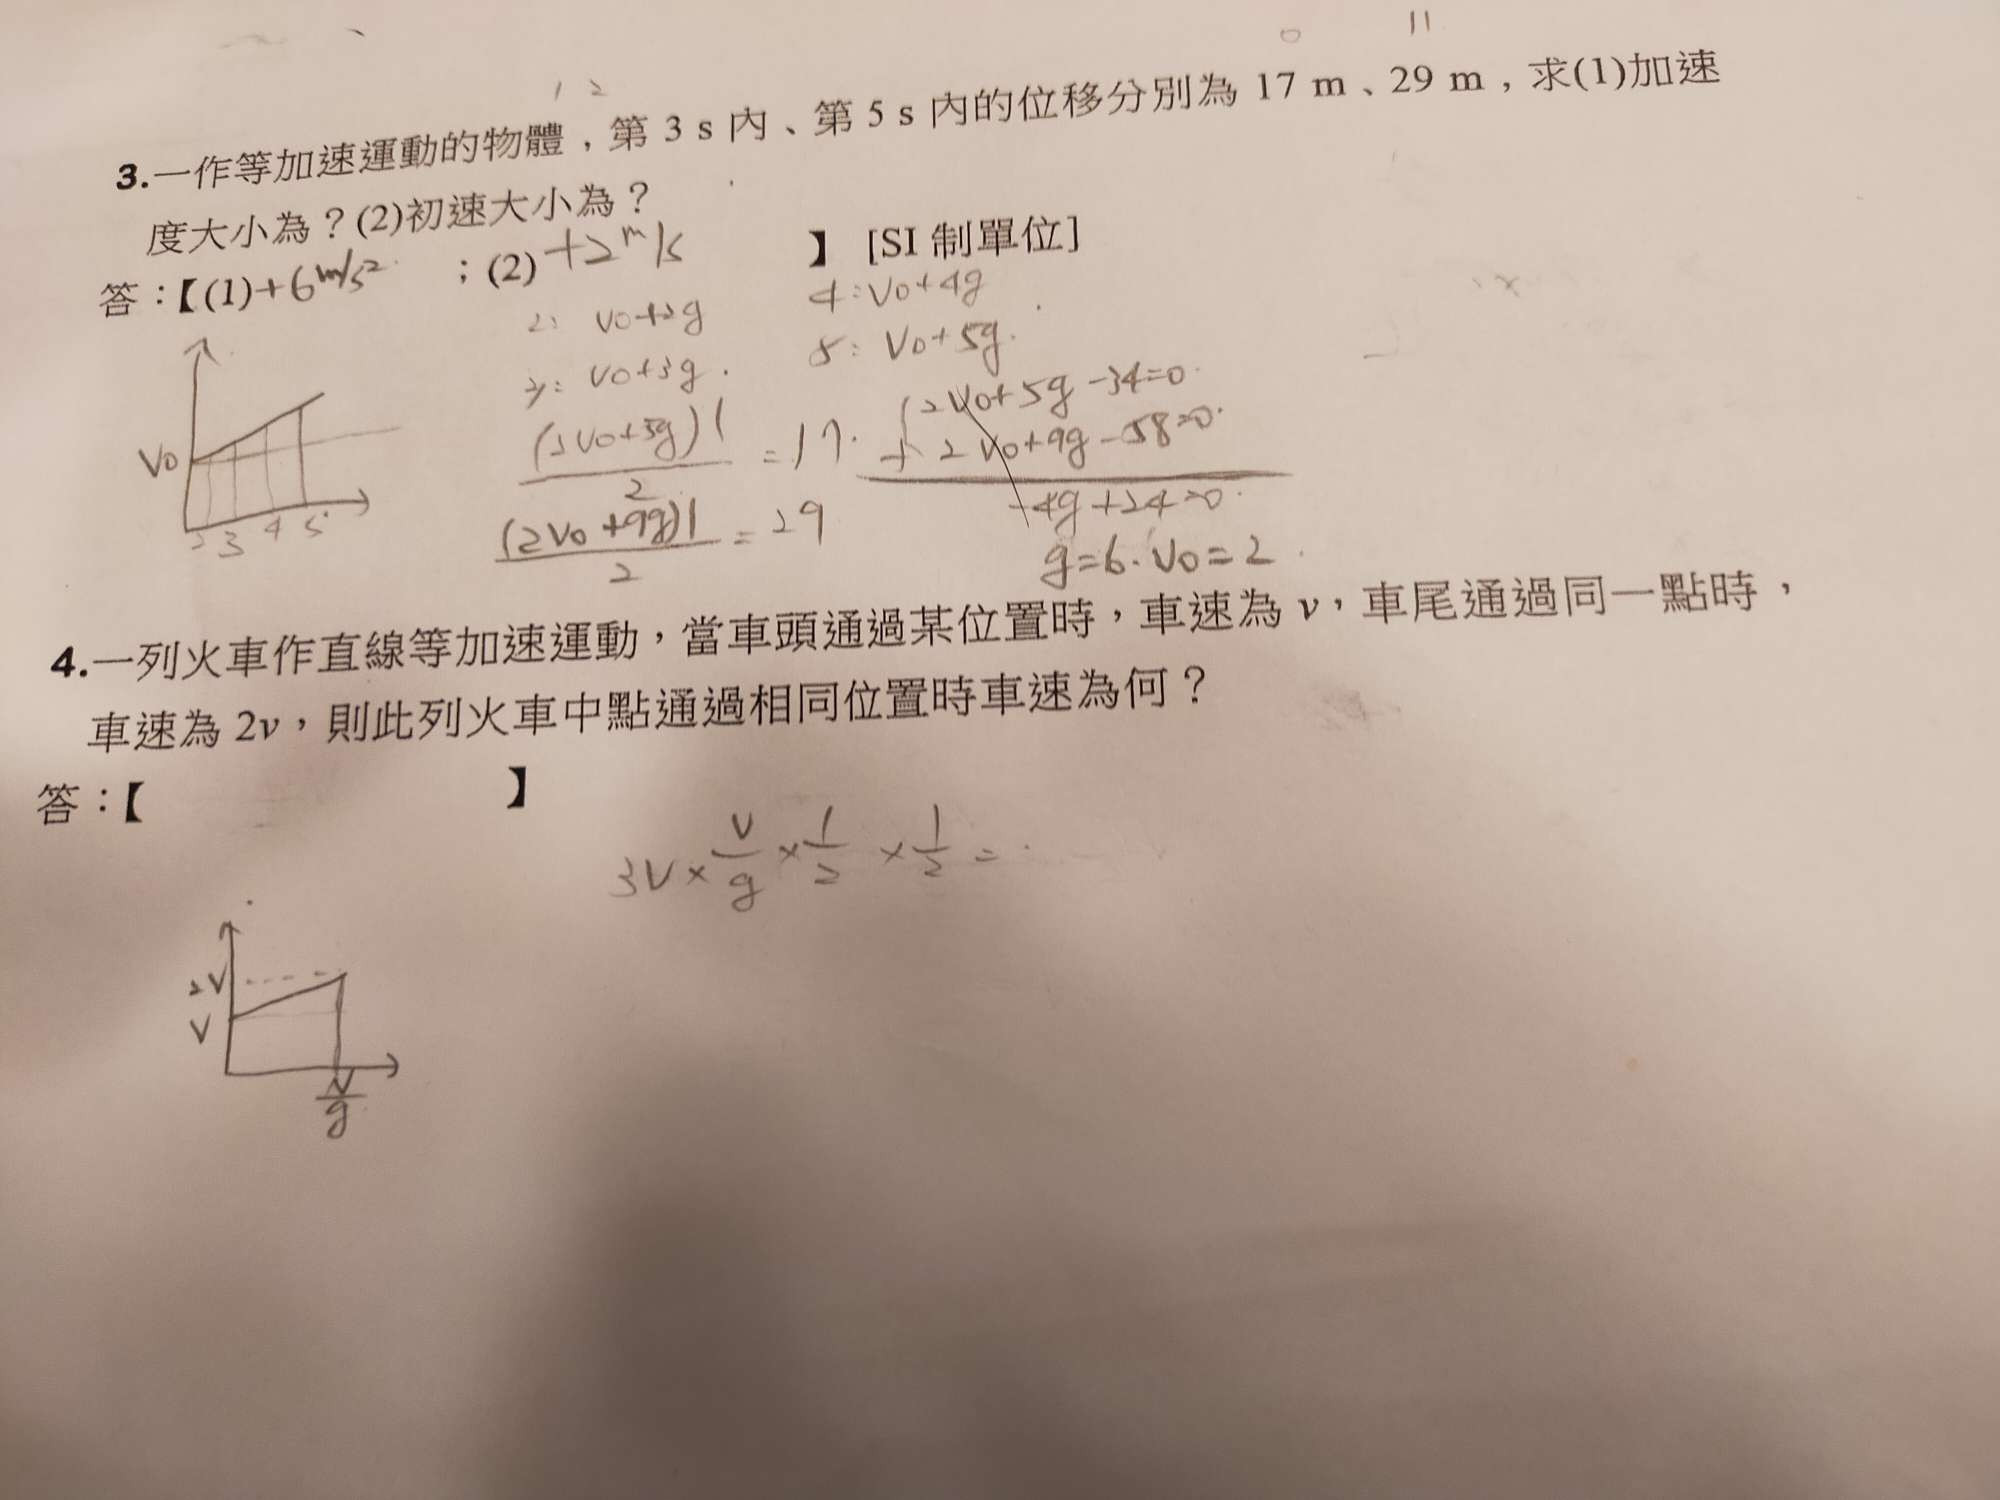 0 11
1 2
3.一作等加速運動的物體，第 3 s 內、第 5 s 內的位移分別為 17 m、29 m，求(1)加速
度大小為？(2)初速大小為？
答：【(1)+6m/s² ；(2)+2m/s 】 [SI 制單位]
2: V0+2g 4:V0+4g
3: V0+3g. 5: V0+5g.
(2V0+5g)1/2 =17.
(2V0+9g)1/2 =29
2V0+5g-34=0.
+ 2V0+9g-58=0.
-4g+24=0.
g=6. V0=2
V0
2 3 4 5
4.一列火車作直線等加速運動，當車頭通過某位置時，車速為 v，車尾通過同一點時，
車速為 2v，則此列火車中點通過相同位置時車速為何？
答：【 】
3V×V/g×1/2×1/2=
2V
V
V/g